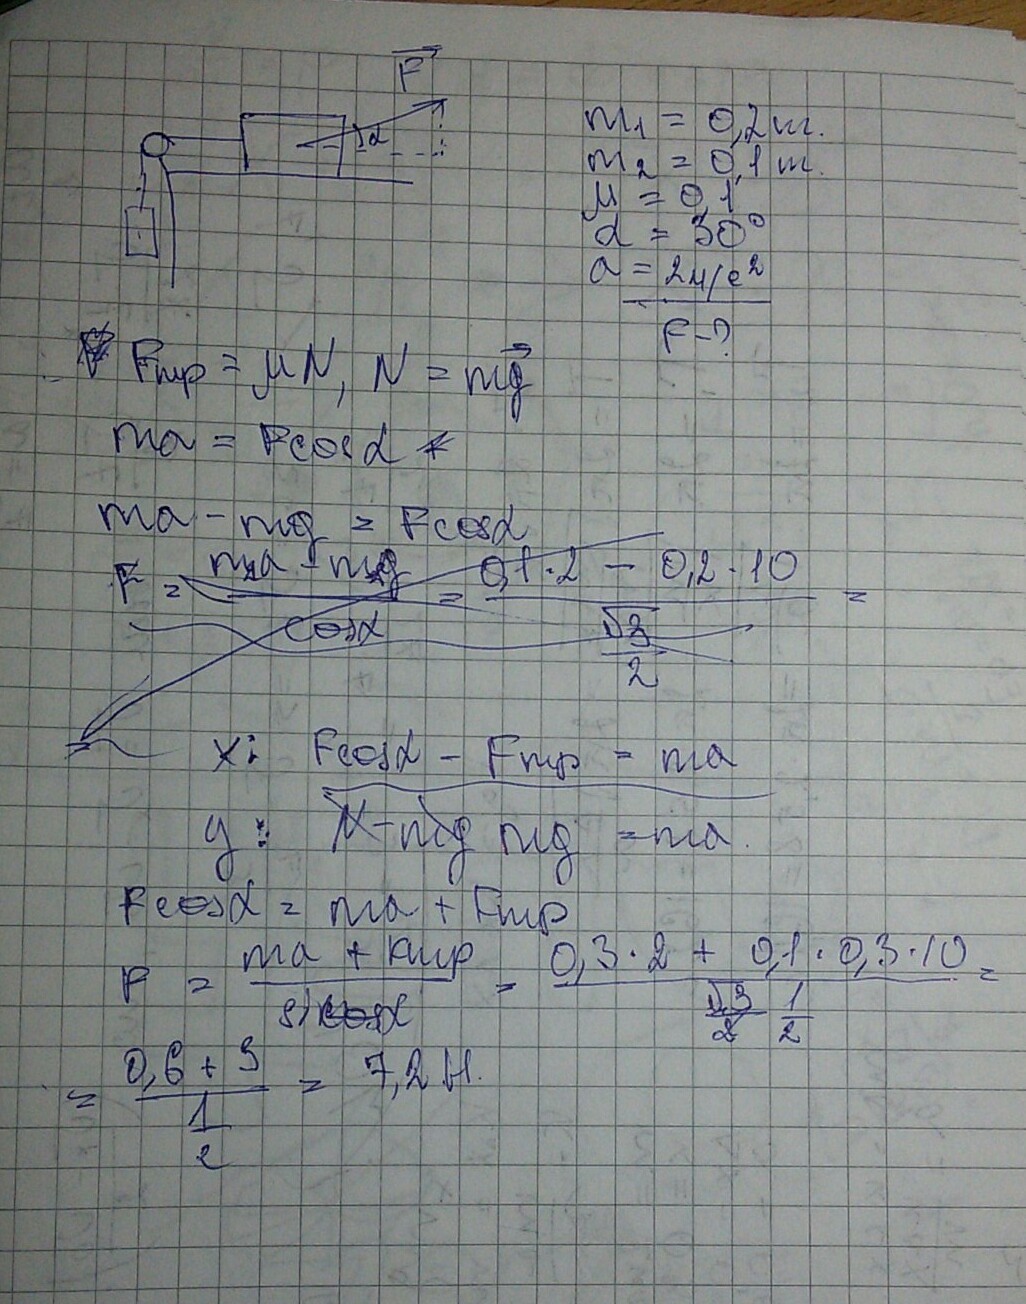 F
α
m₁ = 0,2 кг.
m₂ = 0,1 кг.
μ = 0,1
α = 30°
a = 2 м/с²
F - ?
Fтр = μN, N = mg
ma = Fcosα
ma - mg = Fcosα
F = (m₂a - m₁g)/cosα = (0,1·2 - 0,2·10)/(√3/2) =
x: Fcosα - Fтр = ma
y: N - mg mg = ma.
Fcosα = ma + Fтр
F = (ma + Fтр)/ = (0,3·2 + 0,1·0,3·10)/(√3/2 1/2) =
= (0,6 + 3)/(1/2) = 7,2 Н.